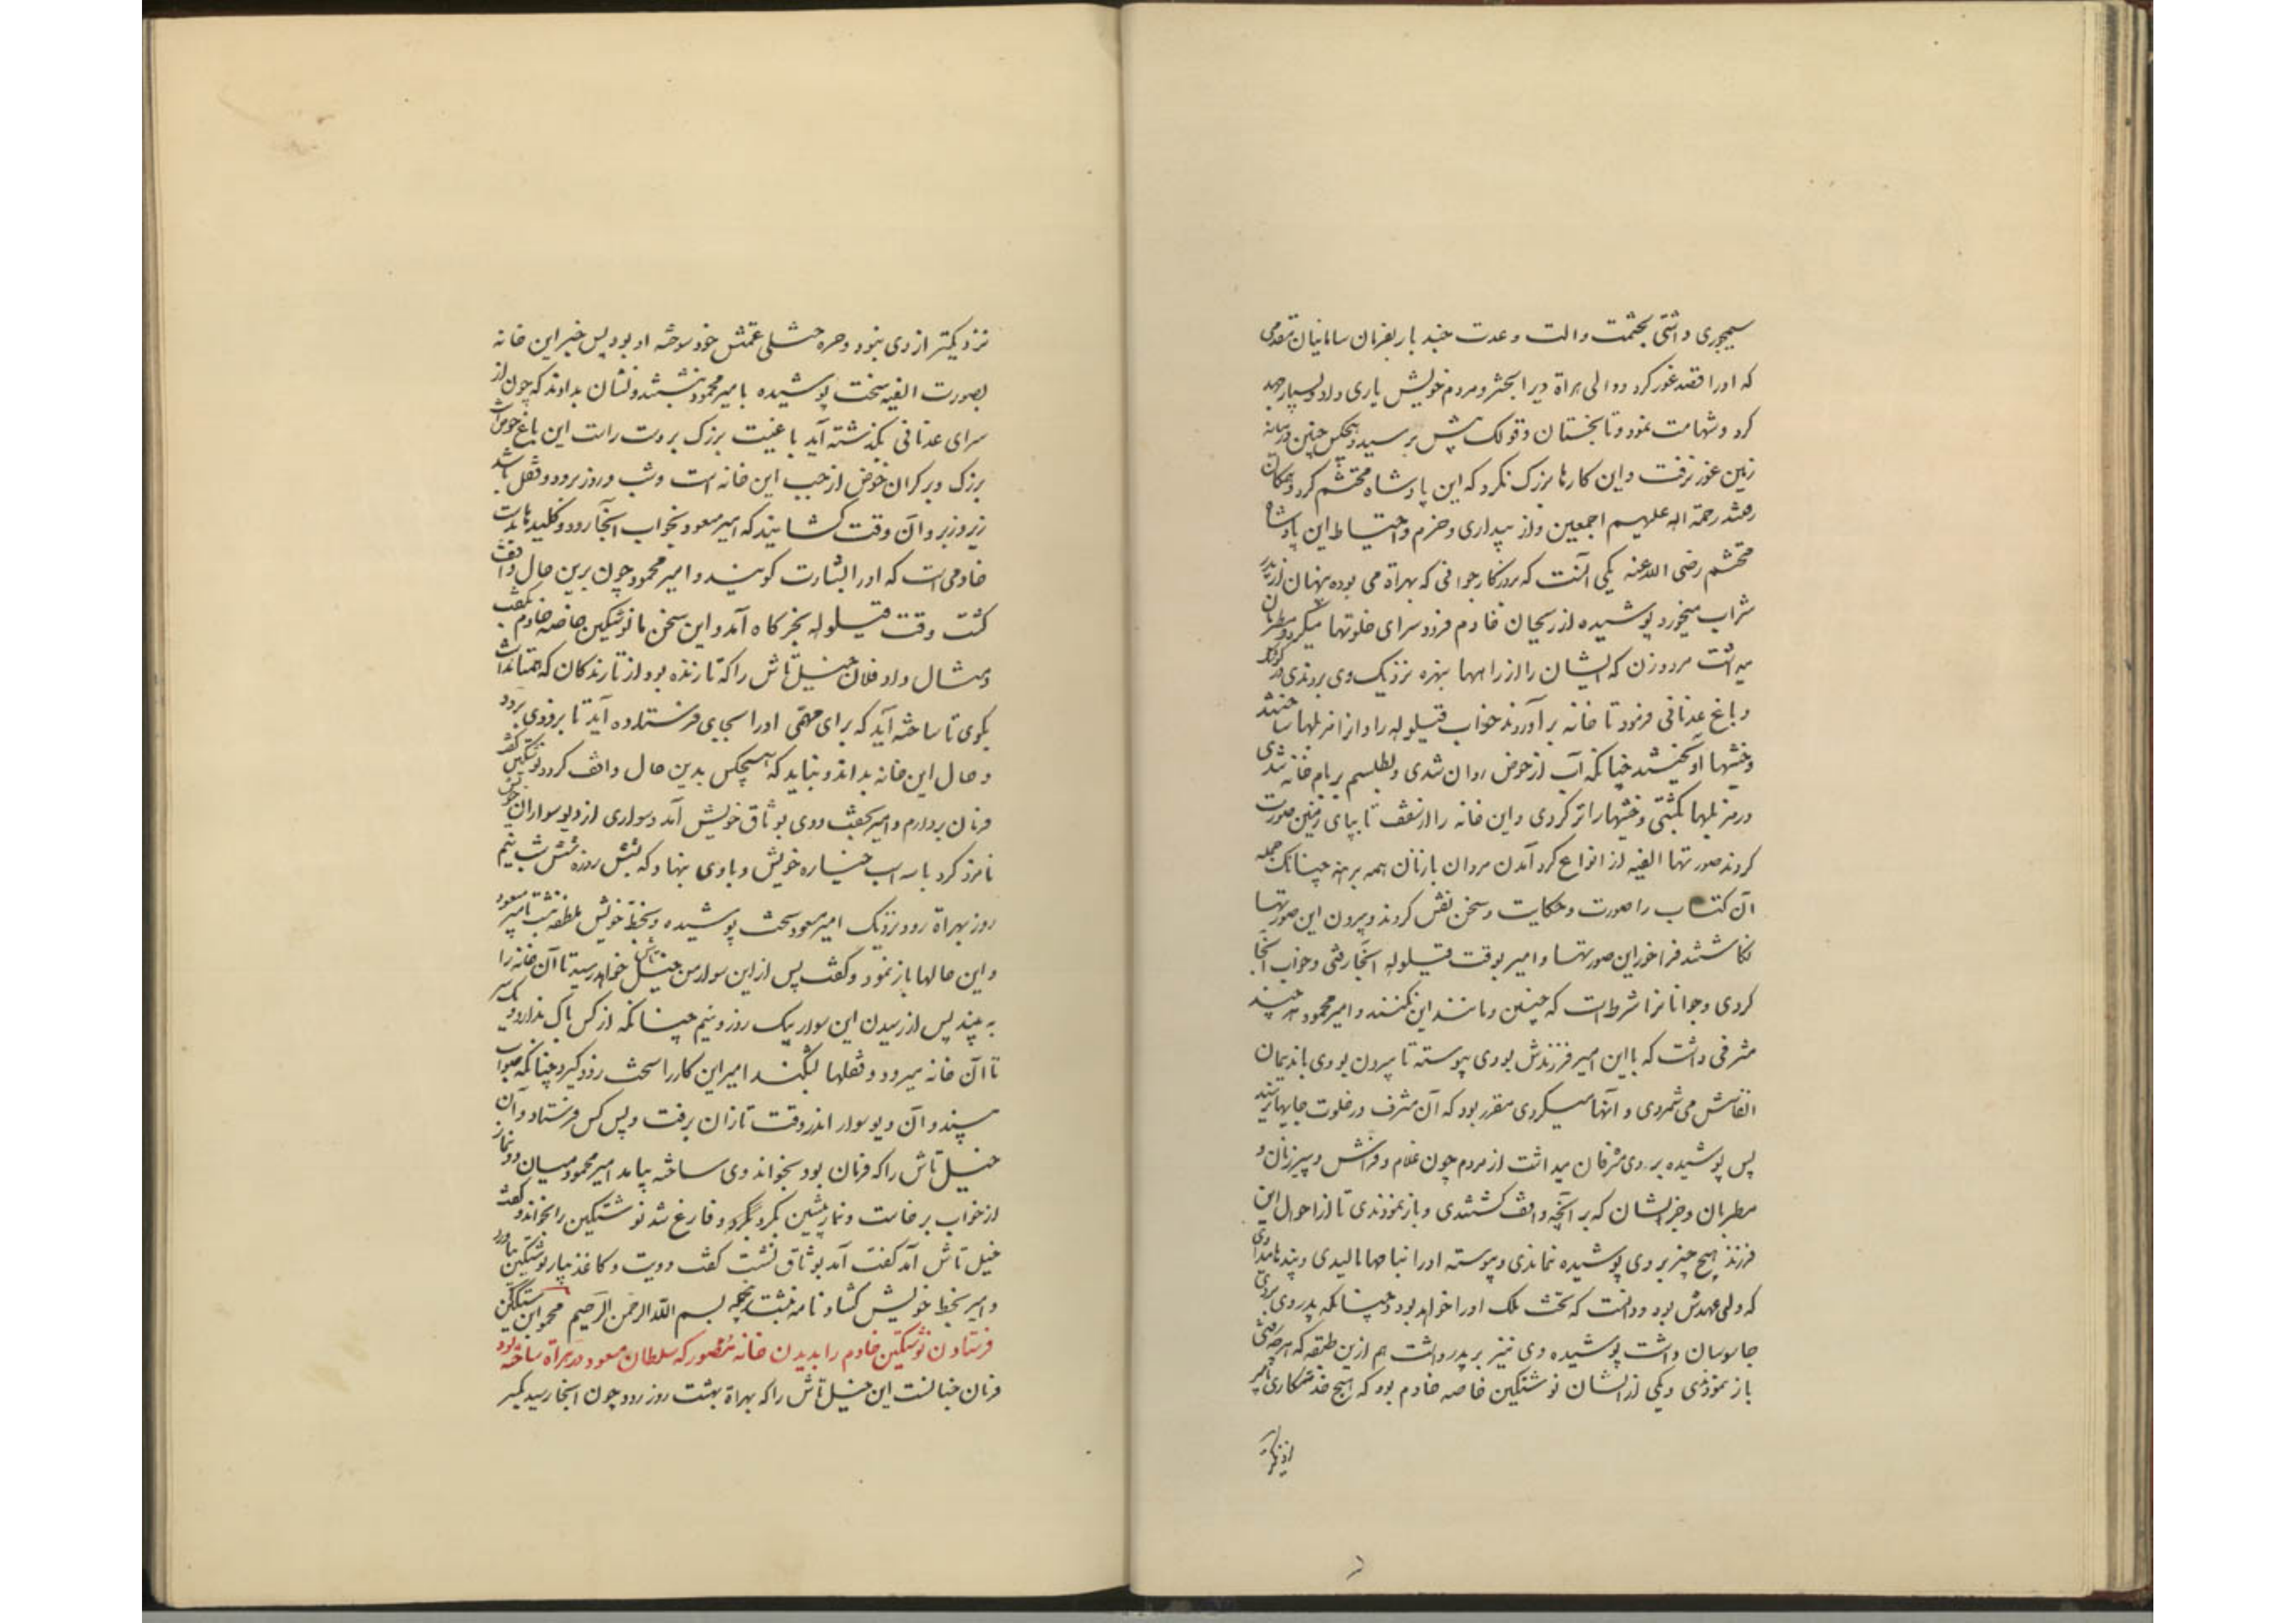 سیمجوری داشتی بحشمت والت و عدت چند بار بفرمان سامانیان قصد می
که او را قصد غور کرد و والی هراة ویرا بحشر و مردم خویش یاری داد و بسیار جهد
کرد و شهامت نمود و تا بخستان و تولک بیش نرسید و هیچکس چنین در میانه
زمین غور نرفت و این کارها بزرک نکرد که این پادشاه محتشم کرد و همکان
رفتند رحمة اله علیهم اجمعین واز بیداری و حزم و احتیاط این پادشاه
محتشم رضی الله عنه یکی آنست که بروزکار جوانی که بهراة می بوده پنهان از پدر
شراب میخورد پوشیده از ریحان خادم فرود سرای خلوتها میکرد و مطربان
میداشت مرد و زن که ایشان را از راهها بنبهره نزدیک وی بردندی در کوشک
و باغ عدنانی فرمود تا خانه برآوردند خواب قیلوله را و از انرملها ساختند
و خیشها آویختند چنانکه آب از حوض روان شدی و بطلسم بر بام خانه شدی
و در مزملها بکشتی و خیشها را تر کردی و این خانه را از سقف تا بپای زمین صورت
کردند صورتها الفیه از انواع کرد آمدن مردان با زنان همه برهنه چنانک جمله
آن کتاب را صورت و حکایت و سخن نقش کردند و بیرون این صورتها
نکاشتند فراخور این صورتها و امیر بوقت قیلوله آنجا رفتی و خواب آنجا
کردی و جوانانرا شرط است که چنین و مانند این بکنند و امیر محمود هر چند
مشرفی داشت که با این امیر فرزندش بودی پیوسته تا بیرون بودی با ندیمان
انفاسش می شمردی و انها میکردی مقرر بود که آن مشرف در خلوت جایها نرسد
پس پوشیده بر وی مشرفان میداشت از مردم چون غلام و فراش و پیرزنان و
مطربان و جز ایشان که بر آنچه واقف کشتندی و باز نمودندی تا از احوال این
فرزند هیچ چیز بر وی پوشیده نماندی و پیوسته او را بنامها مالیدی و پندها میدادی
که ولی عهدش بود و دانست که تخت ملک او را خواهد بود و چنانکه پدر وی بر وی
جاسوسان داشت پوشیده وی نیز بر پدر داشت هم ازین طبقه که هر چه رفتی
باز نمودندی و یکی از ایشان نوشتکین خاصه خادم بود که هیچ خدمتکاری بامیر
نزدیکتر از وی نبود و حره ختلی عمتش خود سوخته او بود پس خبر این خانه
بصورت الفیه سخت پوشیده با میر محمود نبشتند و نشان بدادند که چون از
سرای عدنانی بکذشته آید باغیست بزرک بر دست راست این باغ حوضیست
بزرک و بر کران حوض از چپ این خانه است و شب و روز برو دو قفل باشد
زیر و زبر و آن وقت کشایند که امیر مسعود بخواب آنجا رود و کلیدها بدست
خادمی است که او را بشارت کویند و امیر محمود چون برین حال واقف
کشت وقت قیلوله بخرکاه آمد و این سخن با نوشتکین خاصه خادم بکفت
و مثال داد فلان خیل تاش را که تازنده بود از تازندکان که همتا نداشت
بکوی تا ساخته آید که برای مهمی او را بجای فرستاده آید تا بزودی برود
و حال این خانه بداند و نباید که هیچکس بدین حال واقف کردد نوشتکین کفت
فرمان بردارم و امیر بخفت و وی بوثاق خویش آمد و سواری از دیوسواران خویش
نامزد کرد با سه اسب خیاره خویش و با وی بنهاد که بشش روز و شش شب و نیم
روز بهراة رود نزدیک امیر مسعود سخت پوشیده و بخط خویش ملطفه نبشت بامیر مسعود
و این حالها باز نمود و کفت پس از این سوار من خیل تاش خواهد رسید تا آن خانه را
به بیند پس از رسیدن این سوار بیک روز و نیم چنانکه از کس باک ندارد و یکسر
تا آن خانه میرود و قفلها بشکند امیر این کار را سخت زود کیرد چنانکه صواب
بیند و آن دیوسوار اندر وقت تازان برفت و پس کس فرستاد و آن
خیل تاش را که فرمان بود بخواند وی ساخته بیامد امیر محمود میان دو نماز
از خواب برخاست و نماز پیشین بکرد و فارغ شد نوشتکین را بخواند و کفت
خیل تاش آمد کفت آمد بوثاق نشست کفت دویت و کاغذ بیار نوشتکین بیاورد
و امیر بخط خویش کشاد نامه نبشت برین جمله بسم الله الرحمن الرحیم محمود ابن سبکتکین
فرستادن نوشتکین خادم را بدیدن خانه مصور که سلطان مسعود در هراة ساخته بود
فرمان چنانست این خیل تاش را که بهراة بهشت روز رود چون آنجا رسید یکسر